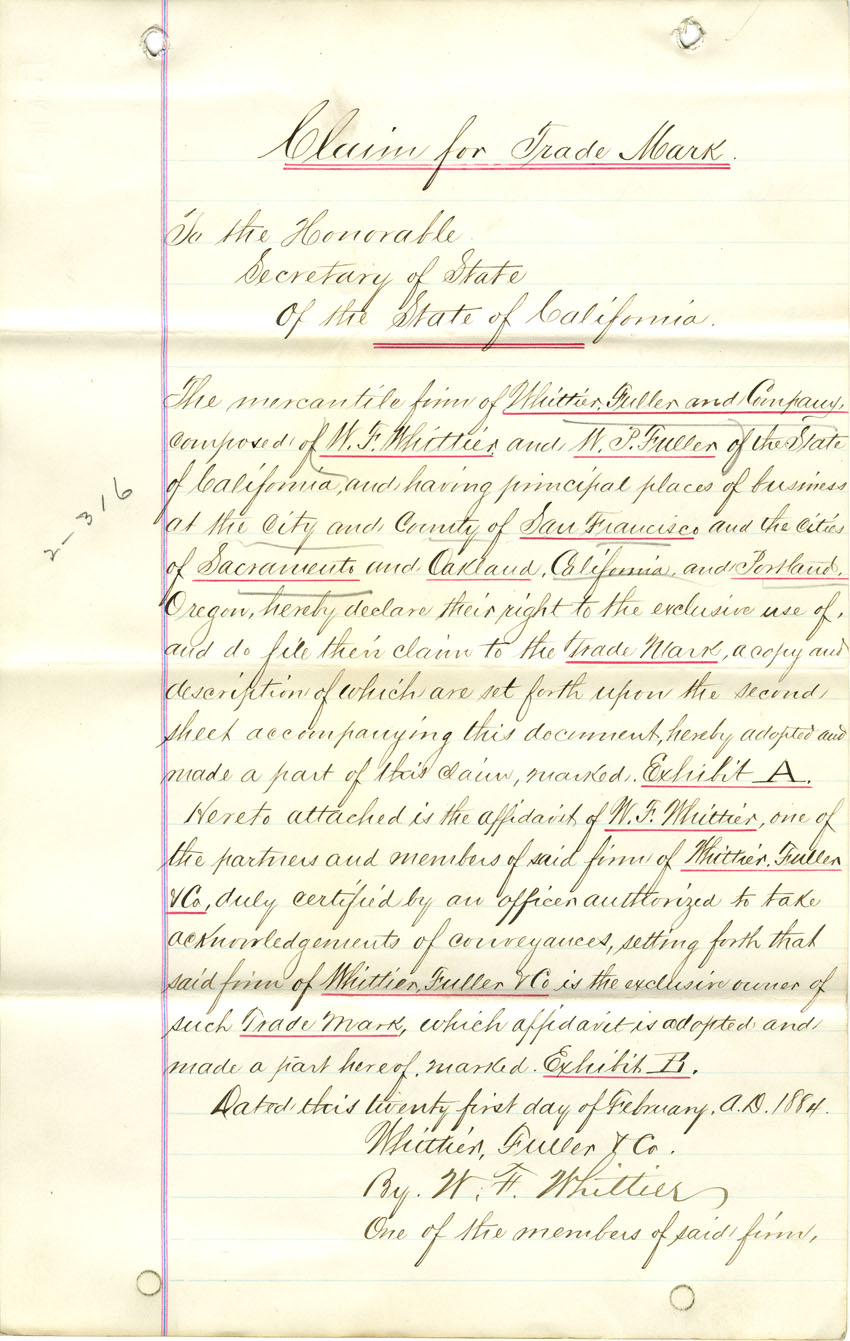 Claim for Trade Mark.
To the Honorable
Secretary of State
Of the State of California.
The mercantile firm of Whittier, Fuller and Company,
composed of W. F. Whittier and W. P. Fuller of the State
of California, and having principal places of business
at the City and County of San Francisco and the cities
of Sacramento and Oakland, California, and Portland,
Oregon, hereby declare their right to the exclusive use of,
and do file their claim to the Trade Mark, a copy and
description of which are set forth upon the second
sheet accompanying this document, hereby adopted and
made a part of this claim, marked. Exhibit A.
Hereto attached is the affidavit of W. F. Whittier, one of
the partners and members of said firm of Whittier, Fuller
& Co, duly certified by an officer authorized to take
acknowledgements of conveyances, setting forth that
said firm of Whittier, Fuller & Co is the exclusive owner of
such Trade Mark, which affidavit is adopted and
made a part hereof, marked. Exhibit B.
Dated this twenty first day of February. A.D. 1884.
Whittier, Fuller & Co.
By. W. F. Whittier
One of the members of said firm,
2-316